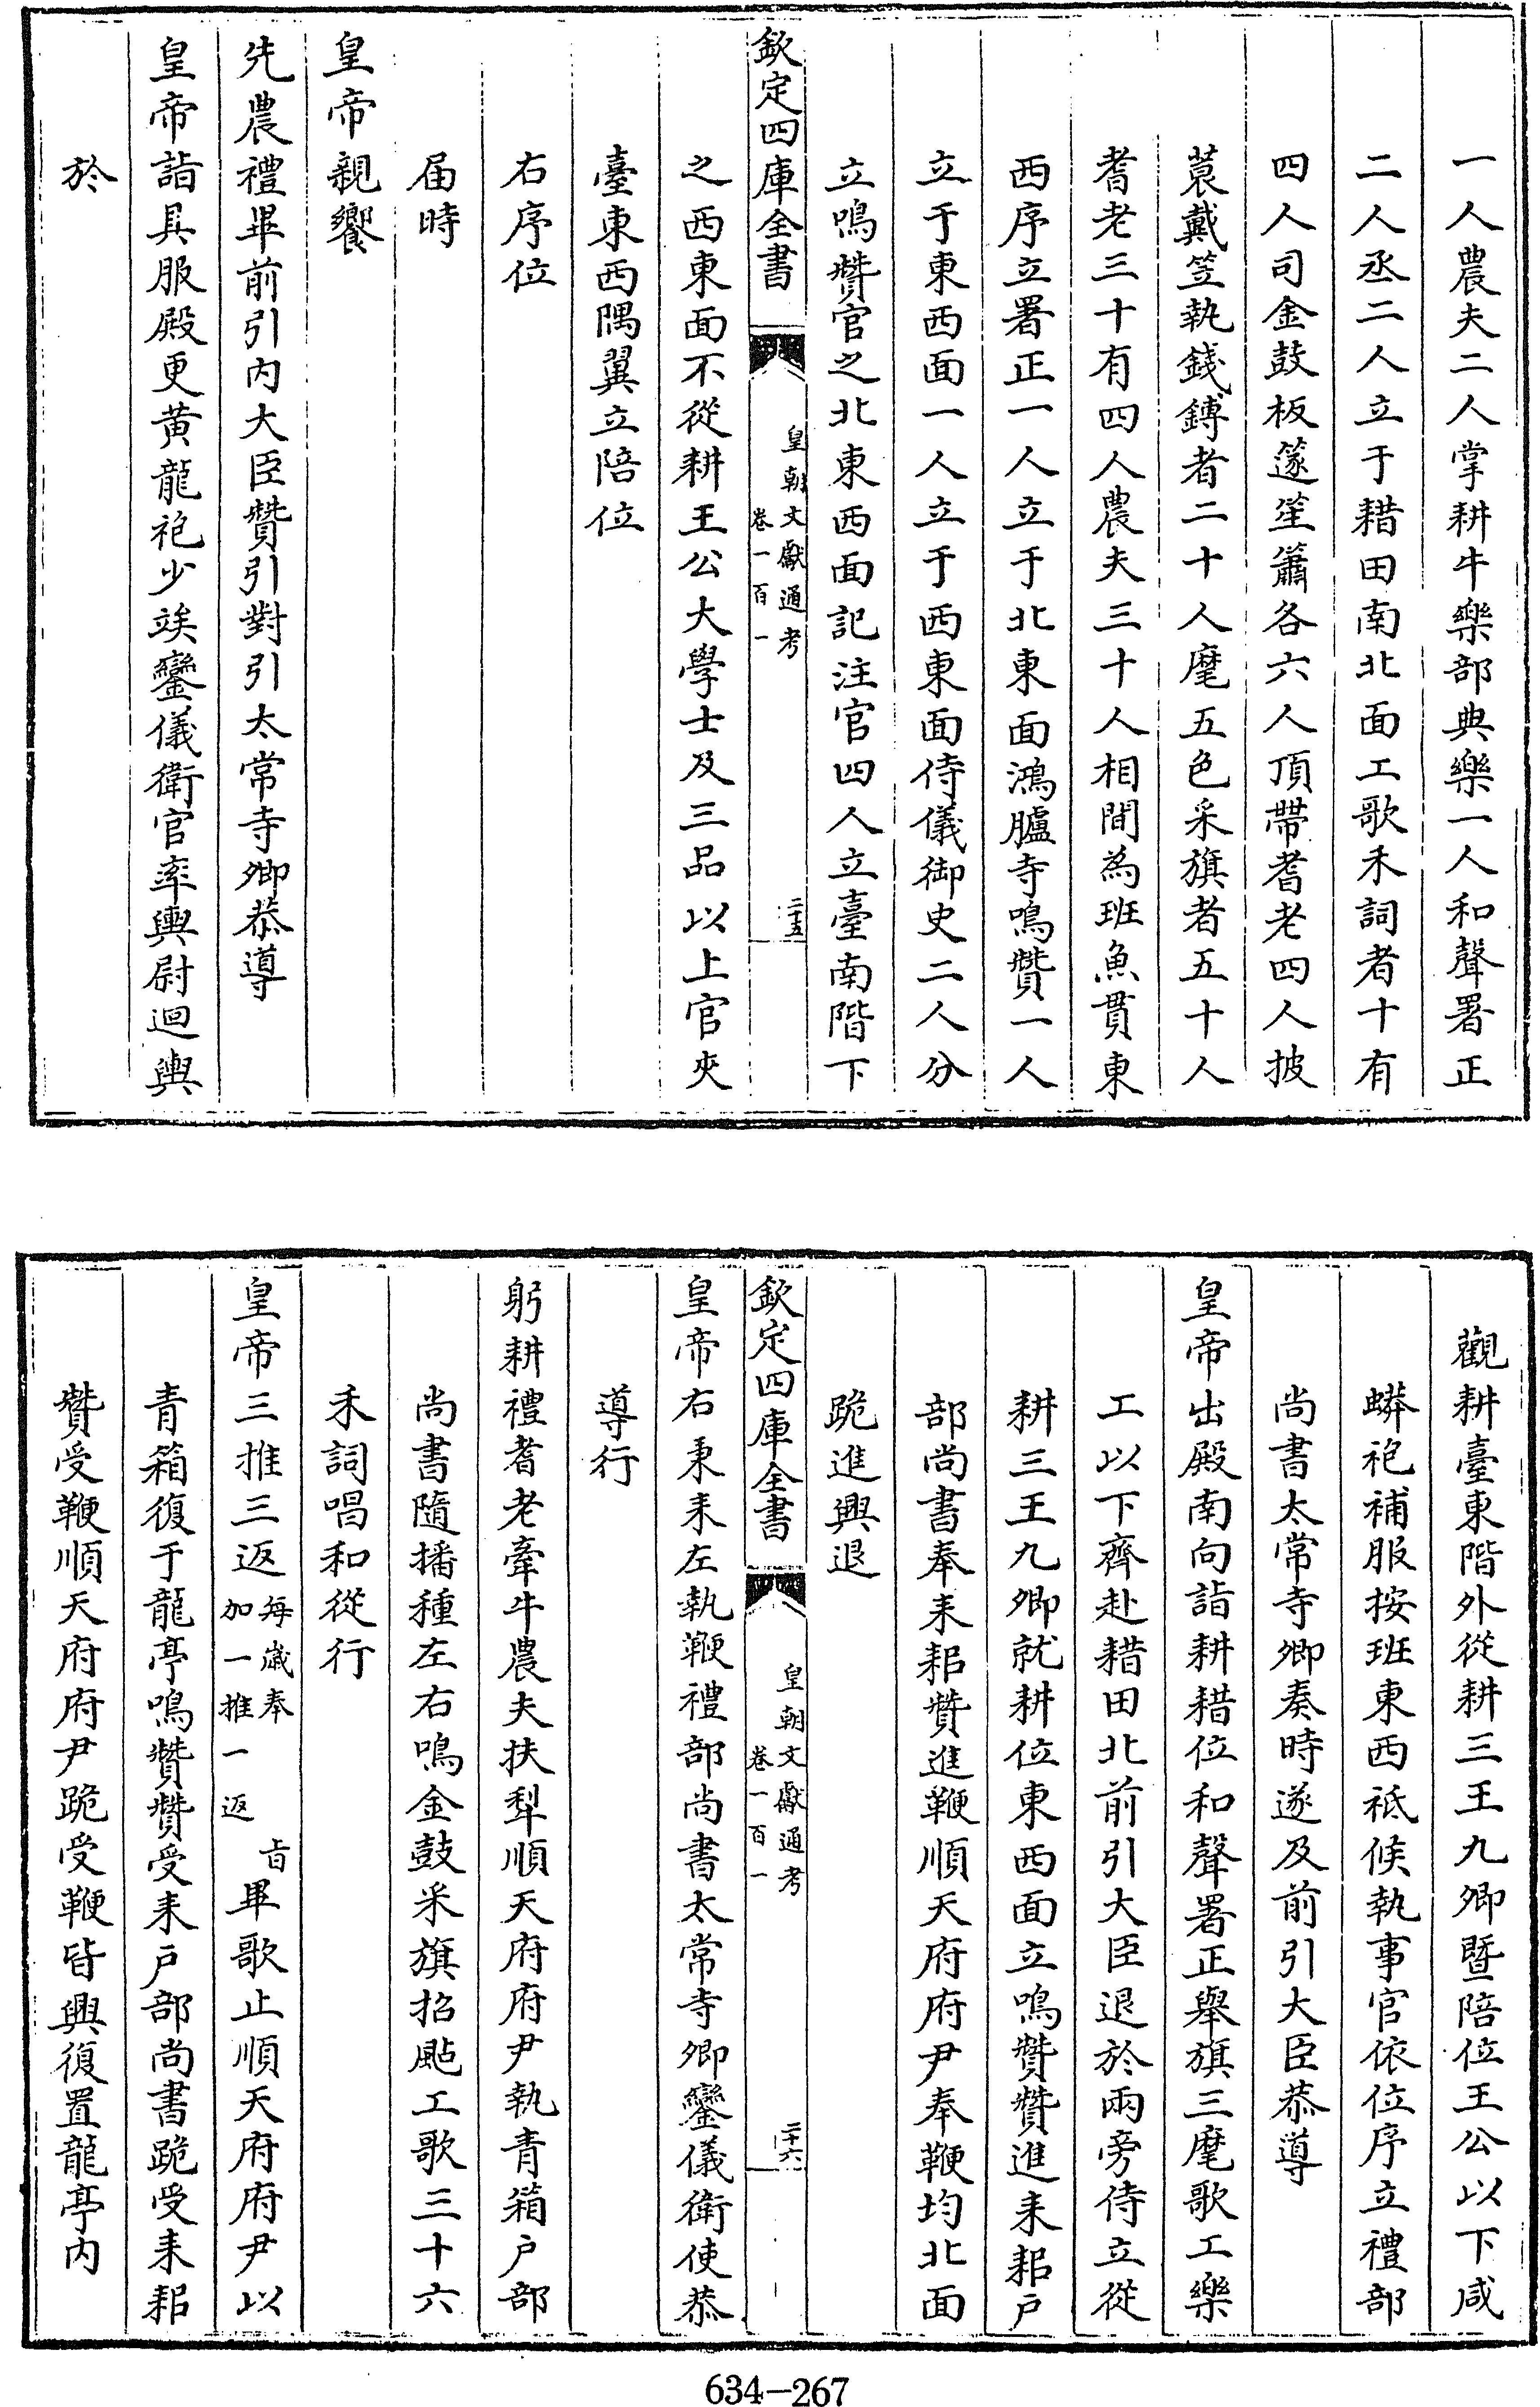 一人農夫二人掌耕牛樂部典樂一人和聲署正
二人丞二人立于耤田南北面工歌禾詞者十有
四人司金鼓板篴笙簫各六人頂帶耆老四人披
蓑戴笠執錢鎛者二十人麾五色采旗者五十人
耆老三十有四人農夫三十人相間為班魚貫東
西序立署正一人立于北東面鴻臚寺鳴贊一人
立于東西面一人立于西東面侍儀御史二人分
立鳴贊官之北東西面記注官四人立臺南階下
欽定四庫全書
皇朝文獻通考
卷一百一
二十五
之西東面不從耕王公大學士及三品以上官夾
臺東西隅翼立陪位
右序位
届時
皇帝親饗
先農禮畢前引内大臣贊引對引太常寺卿恭導
皇帝詣具服殿更黄龍袍少竢鑾儀衛官率輿尉迴輿
於
觀耕臺東階外從耕三王九卿暨陪位王公以下咸
蟒袍補服按班東西祗候執事官依位序立禮部
尚書太常寺卿奏時遂及前引大臣恭導
皇帝出殿南向詣耕耤位和聲署正舉旗三麾歌工樂
工以下齊赴耤田北前引大臣退於兩旁侍立從
耕三王九卿就耕位東西面立鳴贊贊進耒耜户
部尚書奉耒耜贊進鞭順天府府尹奉鞭均北面
跪進興退
欽定四庫全書
皇朝文獻通考
卷一百一
二十六
皇帝右秉耒左執鞭禮部尚書太常寺卿鑾儀衛使恭
導行
躬耕禮耆老牽牛農夫扶犁順天府府尹執青箱户部
尚書隨播種左右鳴金鼓采旗招颭工歌三十六
禾詞唱和從行
皇帝三推三返每歲奉㫖加一推一返畢歌止順天府府尹以
青箱復于龍亭鳴贊贊受耒户部尚書跪受耒耜
贊受鞭順天府府尹跪受鞭皆興復置龍亭内
634-267